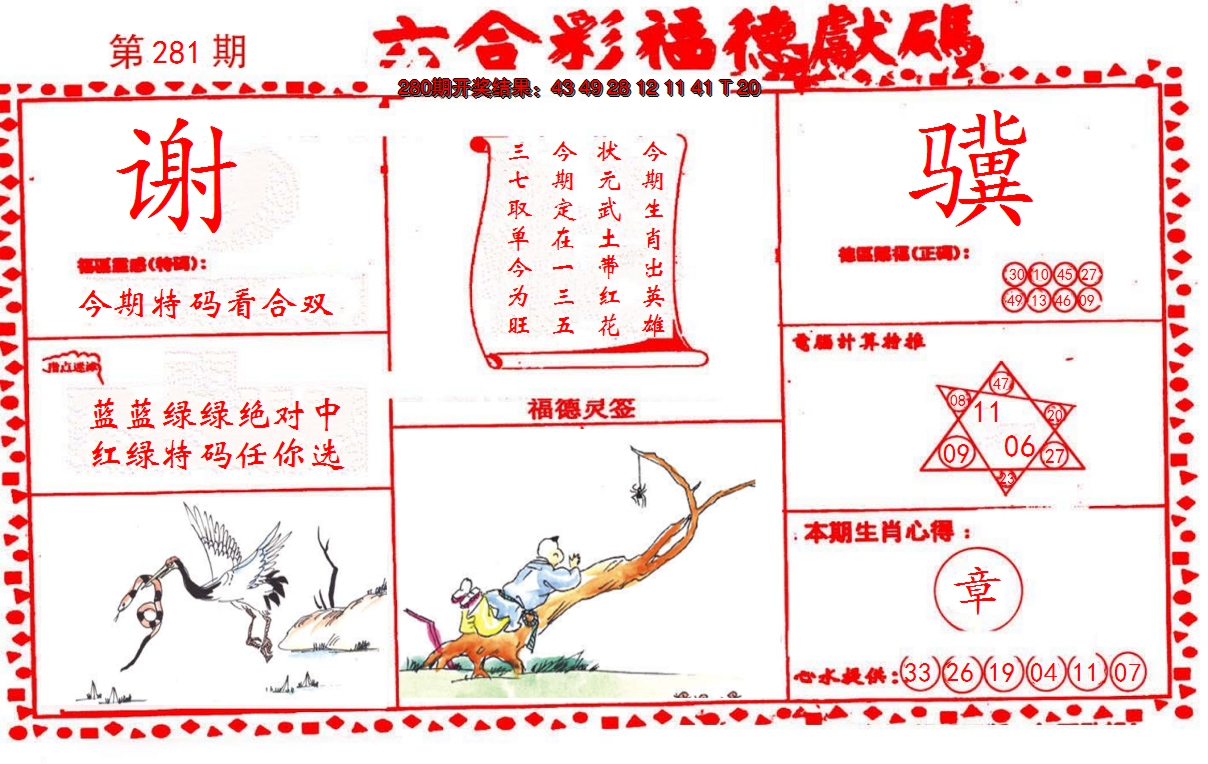 第 281 期
六合彩福德獻碼
280期开奖结果：43 49 28 12 11 41 T 20
谢
福區靈感(特码)：
今期特码看合双
指点迷津
蓝蓝绿绿绝对中
红绿特码任你选
今期生肖出英雄
状元武士带红花
今期定在一三五
三七取单今为旺
福德灵签
骥
德區賜福(正码)：
30 10 45 27
49 13 46 09
電腦计算抢推
47
08 11 20
09 06 27
23
本期生肖心得：
章
心水提供：33 26 19 04 11 07